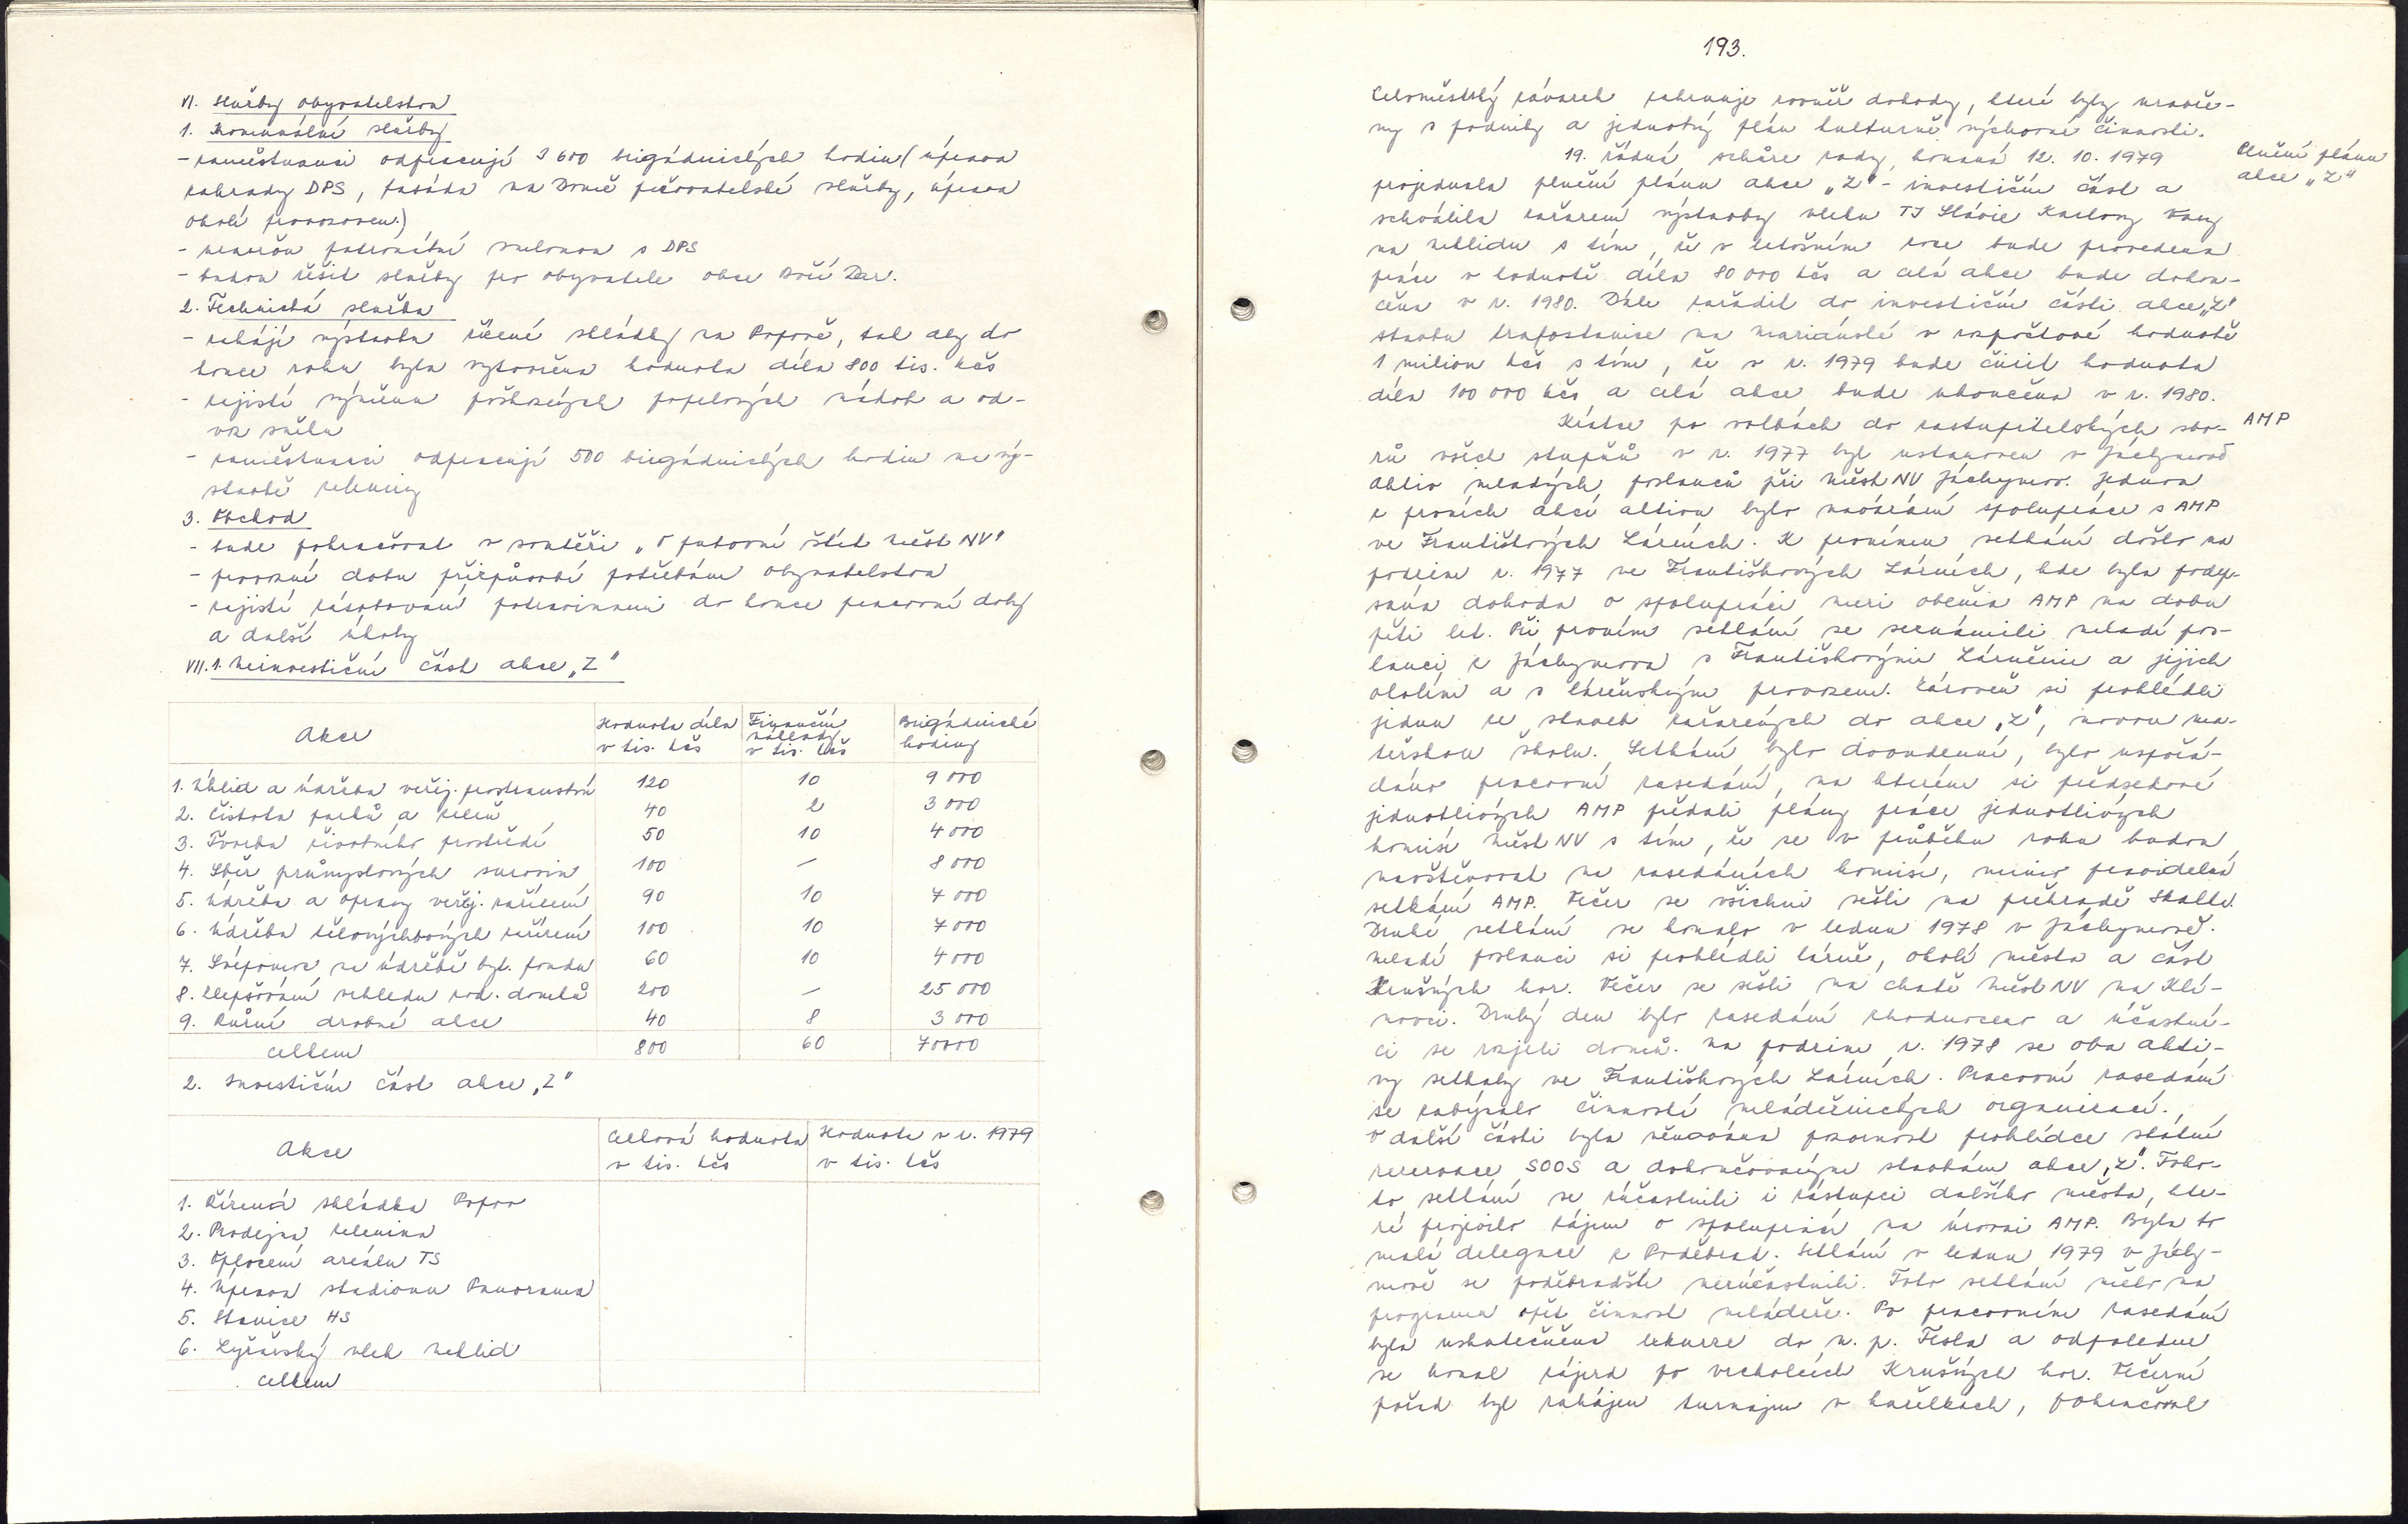 VI. Služby obyvatelstvu
1. Komunální služby
- zaměstnanci odpracují 3 600 brigádnických hodin (úprava
zahrady DPS, fasáda na Domě pečovatelské služby, úprava
okolí provozoven)
- uzavřou patronátní smlouvu s DPS
- budou řešit služby pro obyvatele obce Boží Dar.
2. Technická služba
- zahájí výstavbu řízené skládky na Popově, tak aby do
konce roku byla vytvořena hodnota díla 800 tis. Kčs
- zajistí výměnu poškozených popelových nádob a od-
voz sněhu
- zaměstnanci odpracují 500 brigádnických hodin na vý-
stavbě zeleniny
3. Obchod
- bude pokračovat v soutěži „O putovní štít MěstNV"
- provozní dobu přizpůsobí potřebám obyvatelstva
- zajistí zásobování potravinami do konce pracovní doby
a další úkoly
VII. 1. Neinvestiční část akce „Z"
Akce
Hodnota díla v tis. Kčs
Finanční náklady v tis. Kčs
Brigádnické hodiny
1. Úklid a údržba veřej. prostranství 120 10 9 000
2. Čistota parků a zeleň 40 2 3 000
3. Tvorba životního prostředí 50 10 4 000
4. Sběr průmyslových surovin 100 — 8 000
5. Údržba a opravy veřej. zařízení 90 10 7 000
6. Údržba tělovýchovných zařízení 100 10 7 000
7. Svépomoc na údržbě byt. fondu 60 10 4 000
8. Zlepšování vzhledu rod. domků 200 — 25 000
9. Různé drobné akce 40 8 3 000
celkem 800 60 70000
2. Investiční část akce „Z"
Akce
Celková hodnota v tis. Kčs
Hodnota v r. 1979 v tis. Kčs
1. Řízená skládka Popov
2. Prodejna zelenina
3. Oplocení areálu TS
4. Úprava stadionu Panorama
5. Stanice HS
6. Lyžařský vlek Neklid
celkem
193.
Celoměstský závazek zahrnuje rovněž dohody, které byly uzavře-
ny s podniky a jednotný plán kulturně výchovné činnosti.
19. řádná schůze rady, konaná 12. 10. 1979
Plnění plánu
akce „Z"
projednala plnění plánu akce „Z" - investiční část a
schválila zařazení výstavby vleku TJ Slávie Karlovy Vary
na Neklidu s tím, že v letošním roce bude provedena
práce v hodnotě díla 80 000 Kčs a celá akce bude dokon-
čena v r. 1980. Dále zařadit do investiční části akce „Z"
stavbu trafostanice na Mariánské v rozpočtové hodnotě
1 milion Kčs s tím, že v r. 1979 bude činit hodnota
díla 100 000 Kčs a celá akce bude ukončena v r. 1980.
Krátce po volbách do zastupitelských sbo-
AMP
rů všech stupňů v r. 1977 byl ustanoven v Jáchymově
Aktiv mladých poslanců při MěstNV Jáchymov. Jednou
z prvních akcí aktivu bylo navázání spolupráce s AMP
ve Františkových Lázních. K prvnímu setkání došlo na
podzim r. 1977 ve Františkových Lázních, kde byla pode-
sána dohoda o spolupráci mezi oběma AMP na dobu
pěti let. Při prvním setkání se seznámili mladí pos-
lanci z Jáchymova s Františkovými Lázněmi a jejich
okolím a s lázeňským provozem. Zároveň si prohlédli
jednu ze staveb zařazených do akce „Z", novou ma-
teřskou školu. Setkání bylo dvoudenní, bylo uspořá-
dáno pracovní zasedání, na kterém si předsedové
jednotlivých AMP předali plány práce jednotlivých
komisí MěstNV s tím, že se v průběhu roku budou
navštěvovat na zasedáních komisí, mimo pravidelná
setkání AMP. Večer se všichni sešli na přehradě Skalka.
Druhé setkání se konalo v lednu 1978 v Jáchymově.
Mladí poslanci si prohlédli lázně, okolí města a část
Krušných hor. Večer se sešli na chatě MěstNV na Klí-
novci. Druhý den bylo zasedání zhodnoceno a účastní-
ci se rozjeli domů. Na podzim r. 1978 se oba akti-
vy setkaly ve Františkových Lázních. Pracovní zasedání
se zabývalo činností mládežnických organizací.
V další části byla věnována pozornost prohlídce státní
rezervace SOOS a dokončovaným stavbám akce „Z". Toho-
to setkání se zúčastnili i zástupci dalšího města, kte-
ré projevilo zájem o spolupráci na úrovni AMP. Byla to
malá delegace z Poděbrad. Setkání v lednu 1979 v Jáchy-
mově se poděbradští nezúčastnili. Toto setkání mělo na
programu opět činnost mládeže. Po pracovním zasedání
byla uskutečněna exkurze do n. p. Tesla a odpoledne
se konal zájezd po vrcholcích Krušných hor. Večerní
pořad byl zahájen turnajem v kuželkách, pokračoval